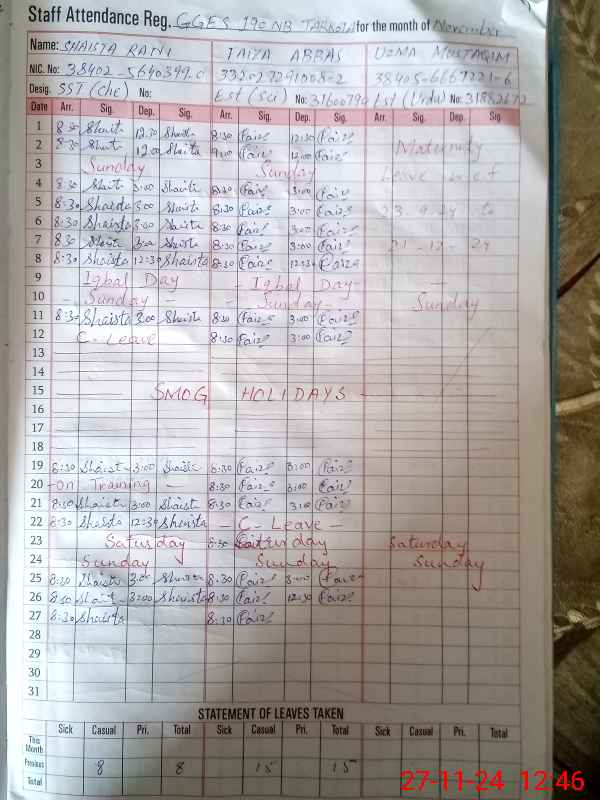 Staff Attendance Reg. GGES 190 NB TARKOTA for the month of November
Name: SHAISTA RANI TAIYA ABBAS UZMA MUSTAQIM
NIC. No: 38402-5640399-0 33202-7291008-2 38405-6667221-6
Desig. SST (Che) No: Est (Sci) No: 31600790 Est (Urdu) No: 31882672
Date Arr. Sig. Dep. Sig. Arr. Sig. Dep. Sig. Arr. Sig. Dep. Sig.
1 8:30 Shaista 12:30 Shaista 8:30 Faiz 12:30 Faiz
2 8:30 Shaista 12:00 Shaista 9:00 Faiz 12:00 Faiz Maternity
3 Sunday Sunday
4 8:30 Shaista 3:00 Shaista 8:30 Faiz 3:00 Faiz Leave w.e.f
5 8:30 Shaista 3:00 Shaista 8:30 Faiz 3:00 Faiz 23-9-24 to
6 8:30 Shaista 3:00 Shaista 8:30 Faiz 3:00 Faiz
7 8:30 Shaista 3:00 Shaista 8:30 Faiz 3:00 Faiz 21-12-24
8 8:30 Shaista 12:30 Shaista 8:30 Faiz 12:30 Faiz
9 Iqbal Day - Iqbal Day -
10 - Sunday - - Sunday - Sunday
11 8:30 Shaista 3:00 Shaista 8:30 Faiz 3:00 Faiz
12 C. Leave 8:30 Faiz 3:00 Faiz
13
14
15 SMOG HOLIDAYS
16
17
18
19 8:30 Shaista 3:00 Shaista 8:30 Faiz 3:00 Faiz
20 -on Training- 8:30 Faiz 3:00 Faiz
21 8:30 Shaista 3:00 Shaista 8:30 Faiz 3:00 Faiz
22 8:30 Shaista 12:30 Shaista - C- Leave -
23 Saturday 8:30 Saturday Saturday
24 Sunday Sunday Sunday
25 8:30 Shaista 3:00 Shaista 8:30 Faiz 3:00 Faiz
26 8:30 Shaista 3:00 Shaista 8:30 Faiz 12:30 Faiz
27 8:30 Shaista 8:30 Faiz
28
29
30
31
STATEMENT OF LEAVES TAKEN
Sick Casual Pri. Total Sick Casual Pri. Total Sick Casual Pri. Total
This Month
Previous 8 8 15 15
Total
27-11-24 12:46